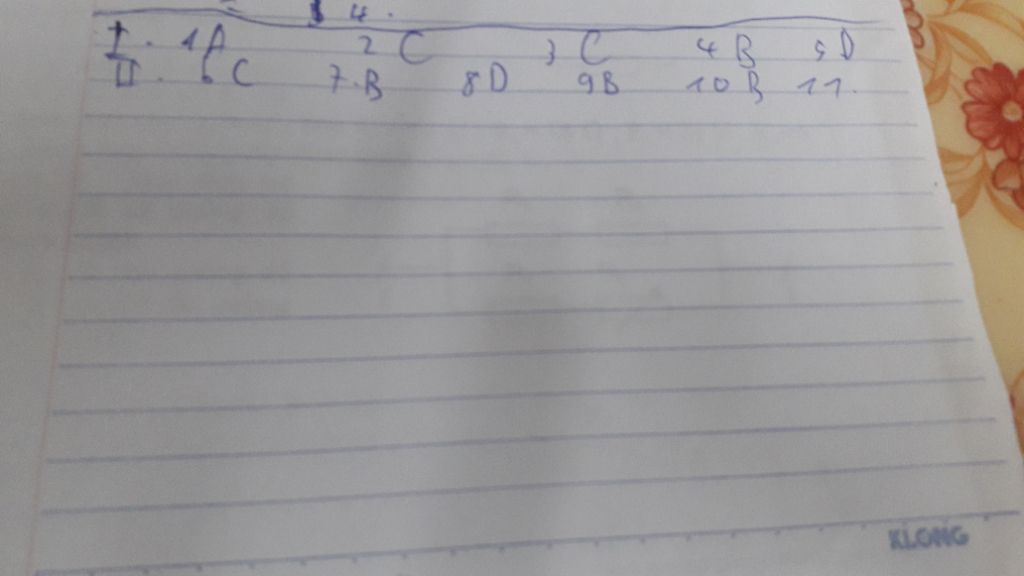 4.
I. 1A 2 C 3 C 4 B 5 D
II. 6 C 7.B 8D 9B 10 B 11.
KLONG